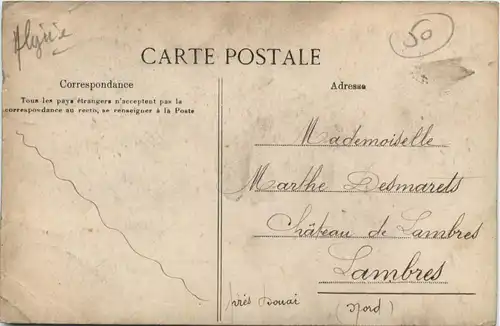 Algérie
50
CARTE POSTALE
Correspondance
Tous les pays étrangers n'acceptent pas la
correspondance au recto, se renseigner à la Poste
Adresse
Mademoiselle
Marthe Desmarets
Château de Lambres
Lambres
près Douai (Nord)